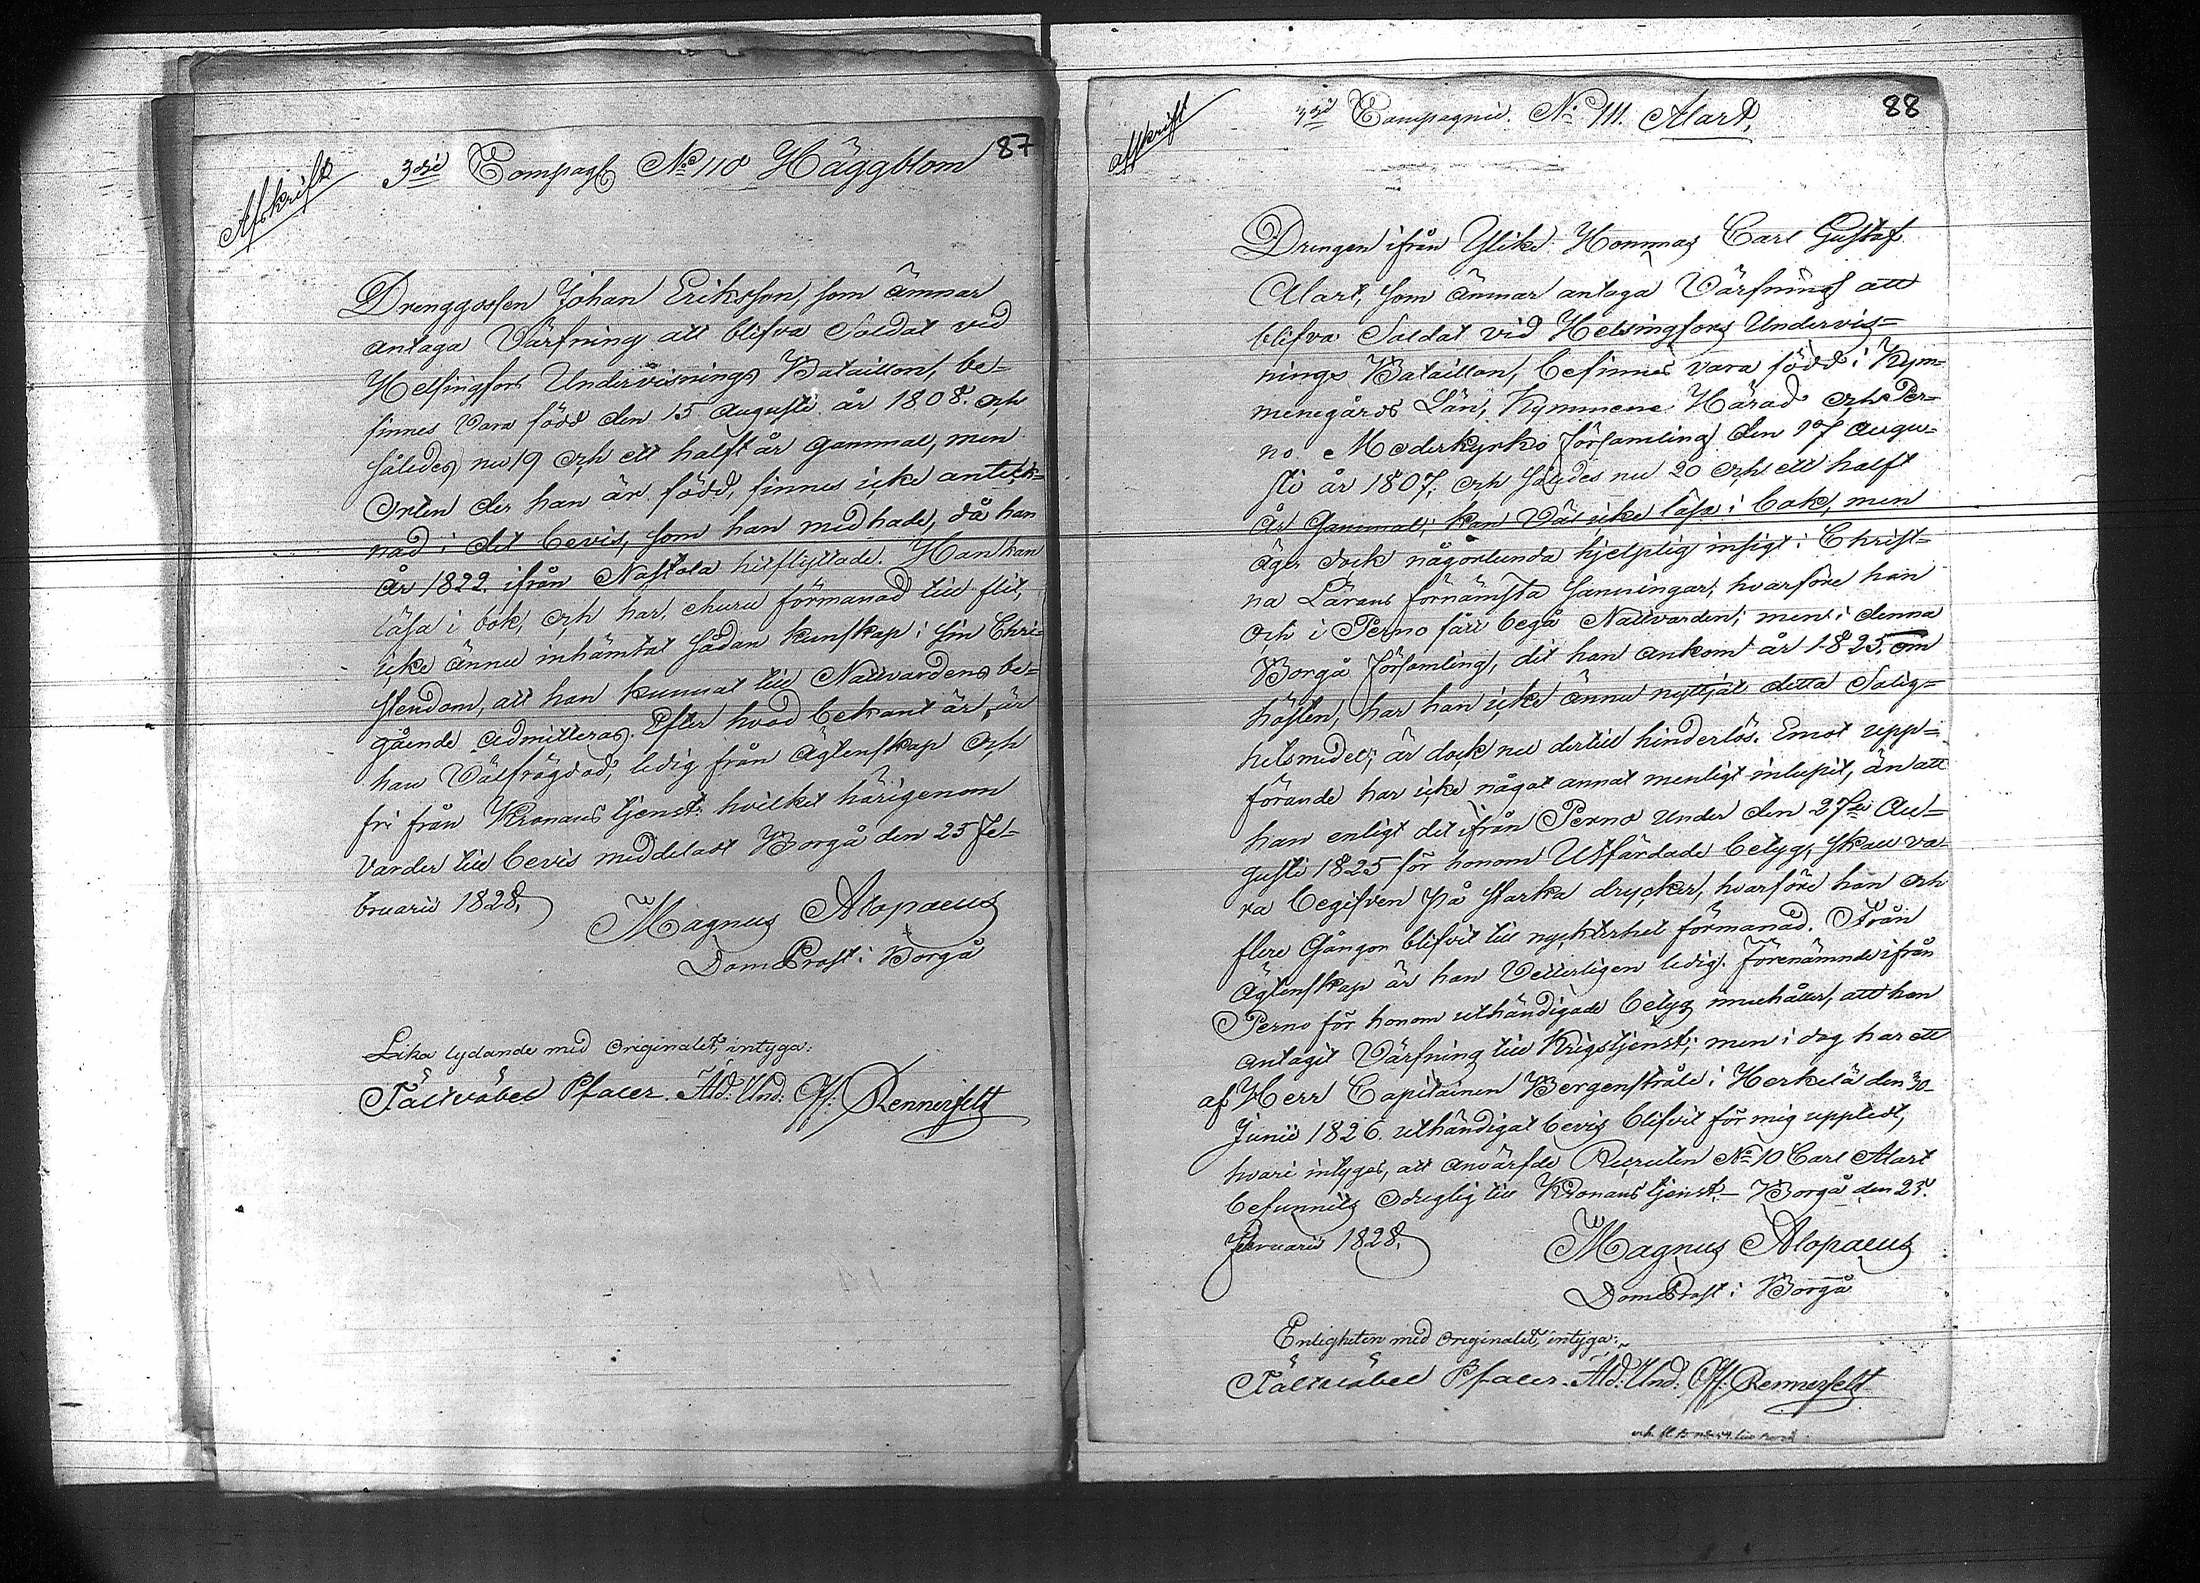 87
Afskrift
3die Compagt No 110 Häggblom
Drenggossen Johan Eriksson, som ämnar
antaga Värfning att blifva Soldat vid
Helsingfors Undervisnings Bataillon, be=
finnes vara född den 15 Augusti år 1808. och
således nu 19 och ett halft år gammal, men
Orten der han är född, finnes icke anteck=
nad i det bevis, som han medhade, då han
år 1822. ifrån Nastola hitflyttade. Han kan
läsa i bok, och har, ehuru förmanad till flit,
icke ännu inhämtat sådan kunskap i sin Chri=
stendom, att han kunnat till Nattvardens be=
gående admitteras. Efter hvad bekant är, är
han Välfrägdad, ledig från Ägtenskap och
fri från Kronans tjenst: hvilket härigenom
varder till bevis meddelast Borgå den 25 Fe=
bruarii 1828.
Magnus Alopaeus
DomProst i Borgå
Lika lydande med Originalet, intyga:
Fältväbel Pfaler. Ad: Und: Off: Rennerfelt
88
Afskrift
3die Compagnie. No 111. Alart.
Drengen ifrån Ylike Hommas Carl Gustaf
Alart, som ämnar antaga Värfning att
blifva Soldat vid Helsingfors Undervis=
nings Bataillon, befinnes vara född i Kym=
menegårds Län, Kymmene Härad och Per=
no Moderkyrko församling den 17 Augu=
sti år 1807, och således nu 20 och ett halft
år gammal; kan väl icke läsa i bok, men
äger dock någorlunda hjelplig insigt i Christ=
na Lärans förnämsta sanningar, hvarföre han
och i Perno fått begå Nattvarden; men i denna
Borgå församling, dit han ankom år 1825. om
hösten, har han icke ännu nyttjat detta Salig=
hetsmedel; är dock nu dertill hinderlös. Emot upp=
förande har icke något annat menligt inlupit, än att
han enligt det ifrån Perno under den 27de Au=
gusti 1825 för honom utfärdade betyg, skall va=
ra begifven på starka drycker, hvarföre han och
flere gångor blifvit till nyckterhet förmanad. Från
Ägtenskap är han Vetterligen ledig. Förenämnde ifrån
Perno för honom uthändigade betyg innehåller, att han
antagit Värfning till Krigstjenst; men i dag har ett
af Herr Capitainen Bergenstråle i Herkelä den 30
Junii 1826. uthändigat bevis blifvit för mig uppledt,
hvari intygas, att anvärfde Recruten No 10 Carl Alart
befunnits oduglig till Kronans tjenst. – Borgå den 25.
Februarii 1828.
Magnus Alopaeus
DomProst i Borgå
Enligheten med Originalet, intyga:
Fältväbel Pfaler. Ad: Und: Off: Rennerfelt